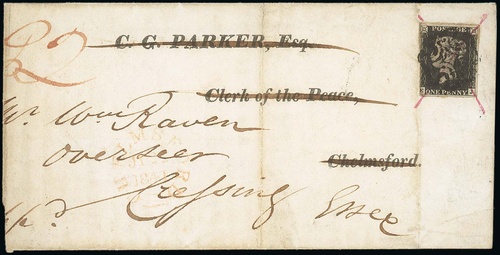 2
C. G. PARKER, Esq.
POSTAGE
ONE PENNY
Clerk of the Peace,
Mr. Wm Raven
Overseer
Chelmsford.
Cressing Essex